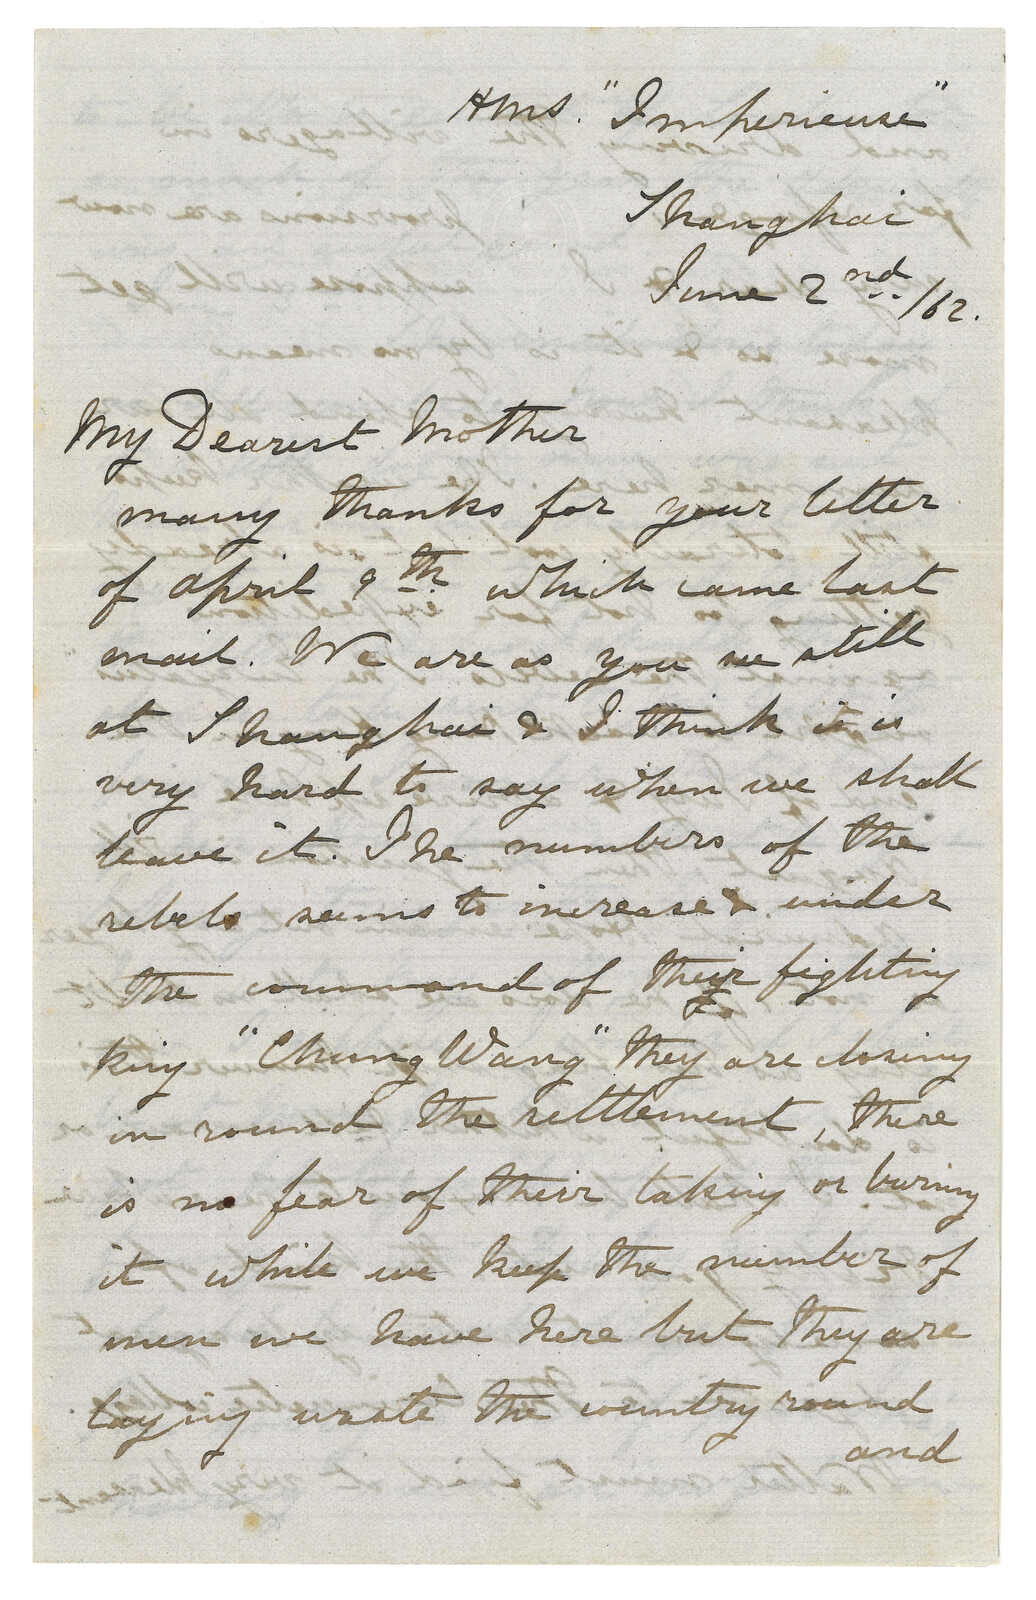 HMS. "Imperieuse"
Shanghai
June 2nd /62.
My Dearest Mother
many thanks for your letter
of april 9th which came last
mail. We are as you see still
at Shanghai & I think it is
very hard to say when we shall
leave it. The numbers of the
rebels seems to increase & under
the command of their fighting
king "Chung Wang" they are closing
in round the settlement, there
is no fear of their taking or burning
it while we keep the number of
men we have here but they are
laying waste the country round
and